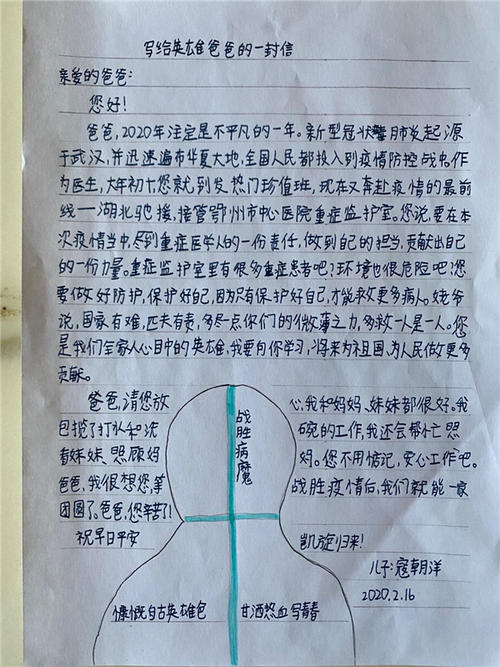 写给英雄爸爸的一封信
亲爱的爸爸:
您好!
爸爸,2020年注定是不平凡的一年。新型冠状
于武汉,并迅速遍布华夏大地,全国人民都投入到疫情防控战中。作
为医生,大年初十您就到发热门诊值班,现在又奔赴疫情的最前
线一湖北驰援,接管鄂州市中心医院重症监护室。您说,要在本
次疫情当中,尽到重症医学人的一份责任,做到自己的担当,贡献出自己
的一份力量。重症监护室里有很多重症患者吧?环境也很危险吧?您
要做好防护,保护好自己,因为只有保护好自己,才能救更多病人。姥爷
说,国家有难,匹夫有责,多尽点你们的微薄之力,多救一人是一人。您
是我们全家人心目中的英雄,我要向你学习,将来为祖国、为人民做更多
贡献。
爸爸,请您放心,我和妈妈、妹妹都很好。我
包揽了打扒和洗碗的工作,我还会帮忙照
看妹妹、照顾妈妈。您不用惦记,安心工作吧。
爸爸,我很想您,等战胜疫情后,我们就能一家
团圆了。爸爸,您辛苦了!
祝早日平安 凯旋归来!
战胜病魔
儿子:寇朝洋
2020.2.16
慷慨自古英雄色 甘洒热血写青春